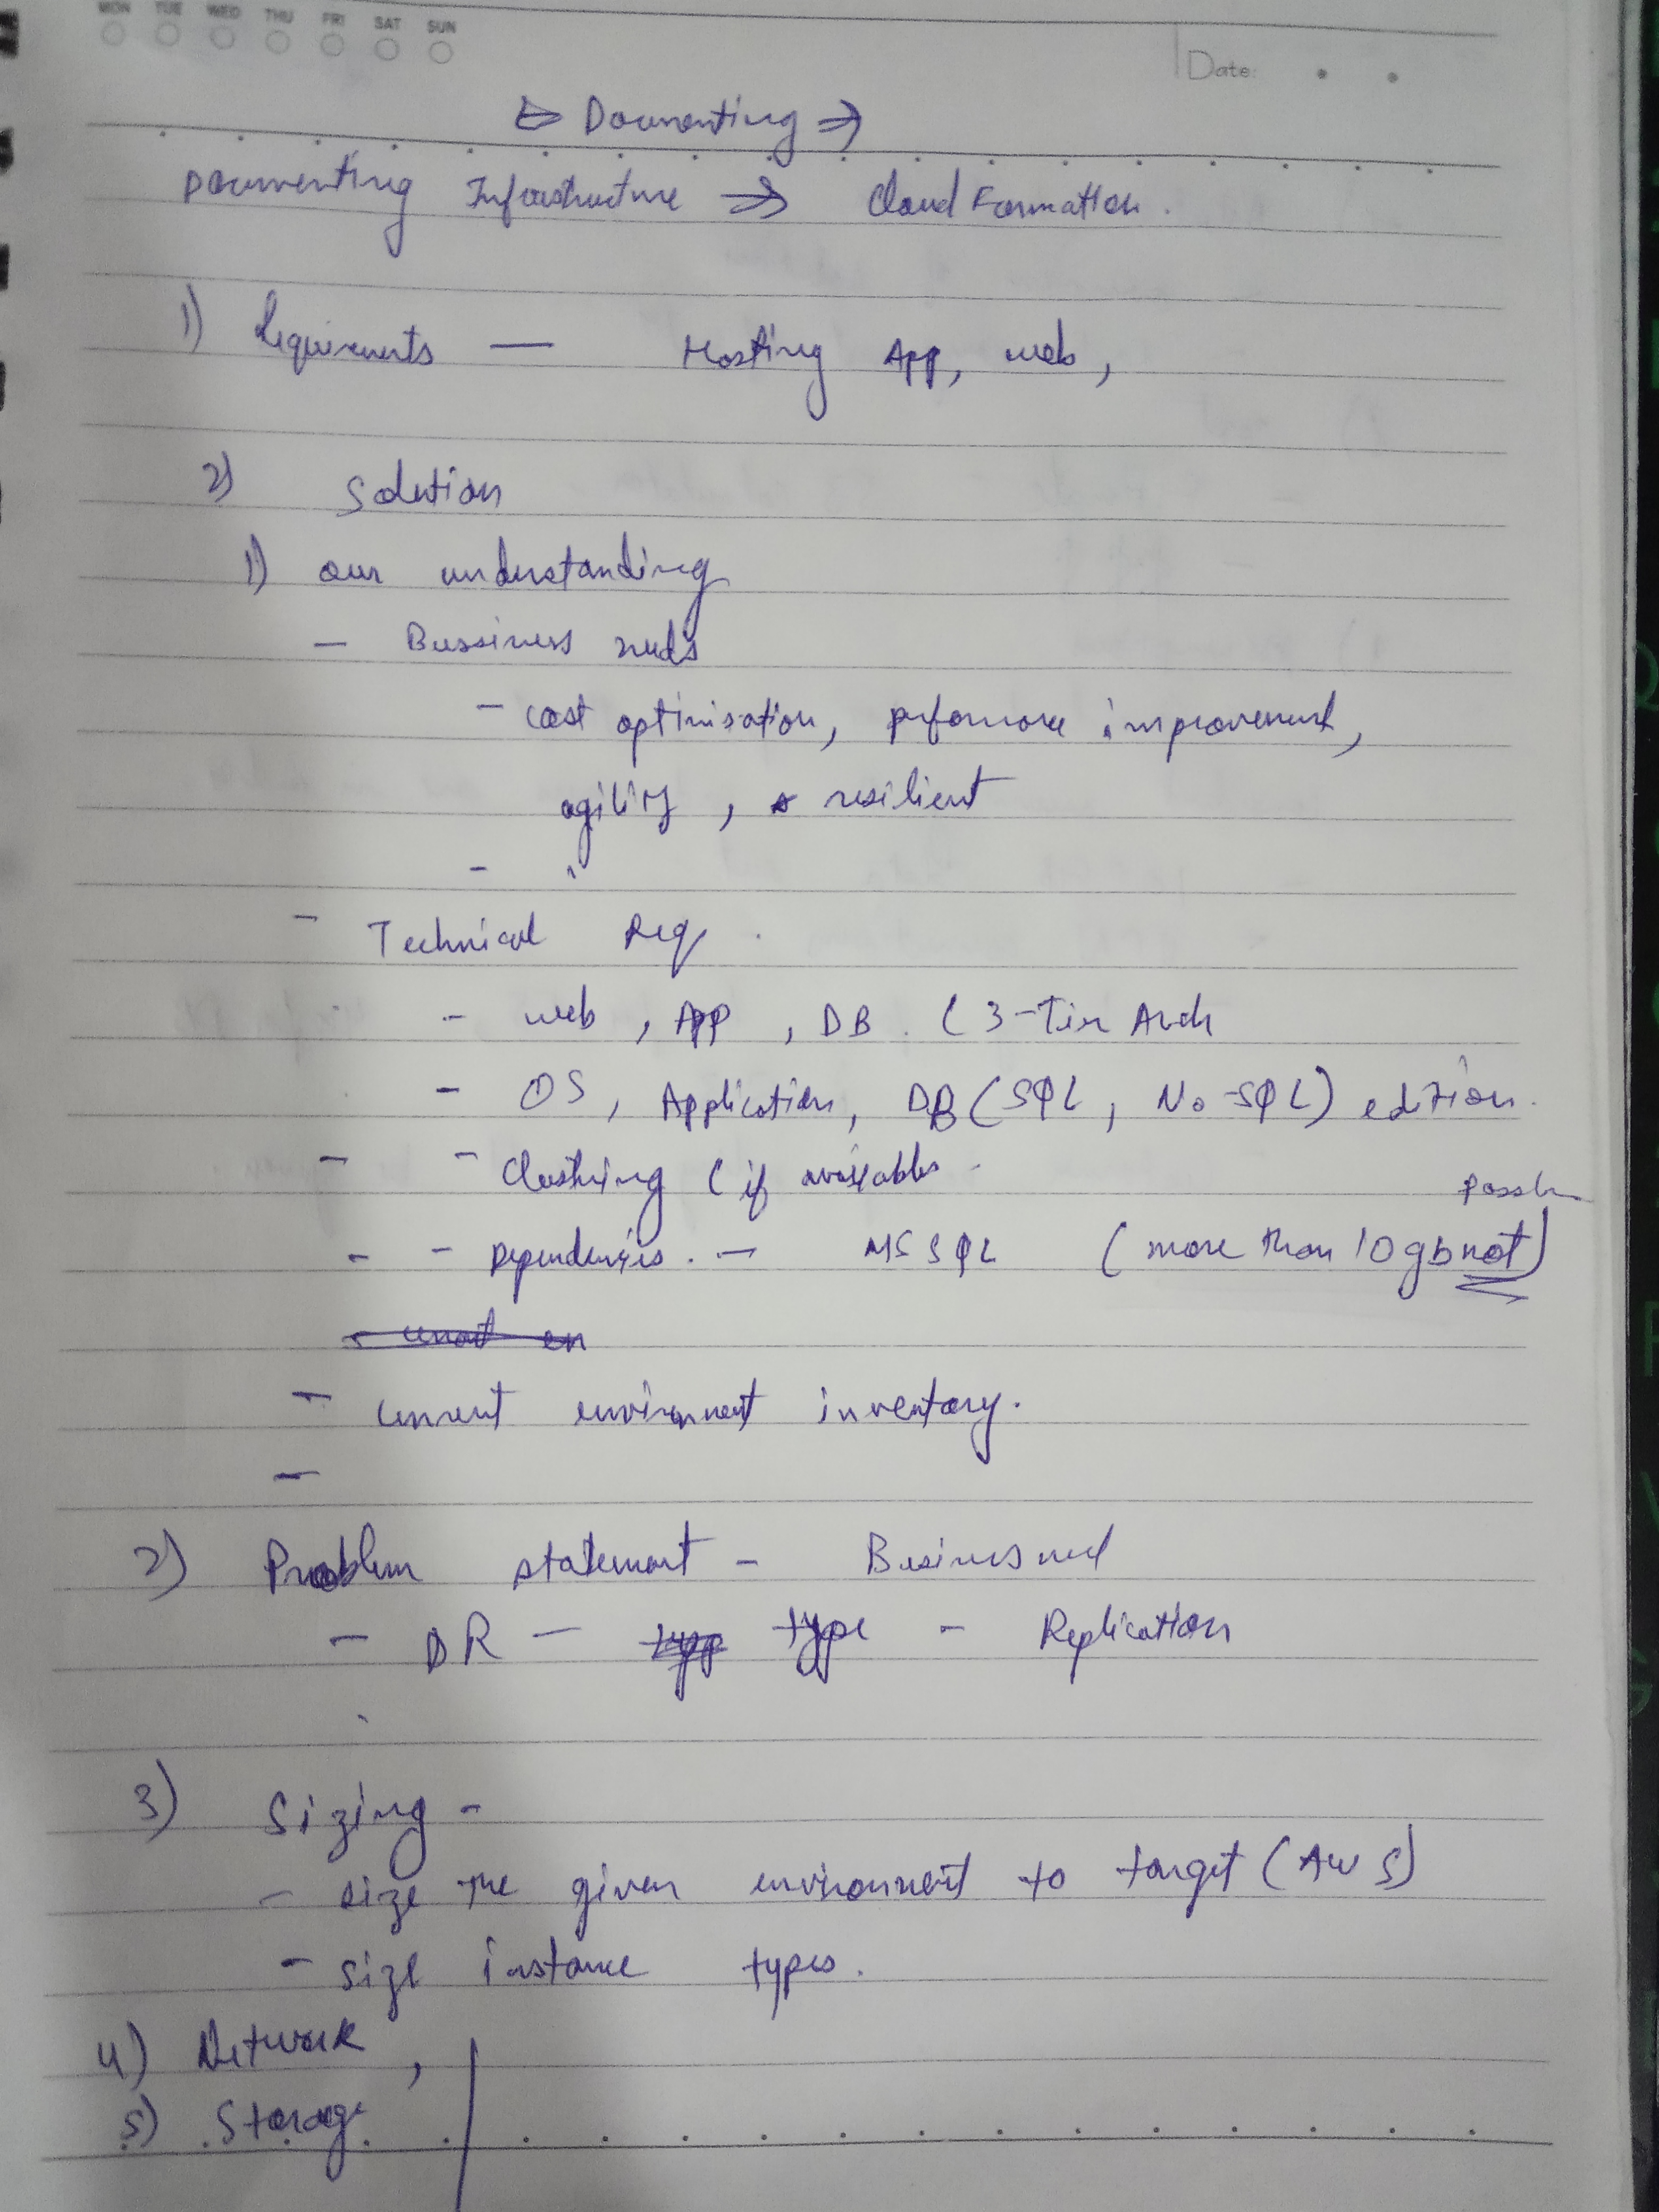 MON TUE WED THU FRI SAT SUN
Date:
⇒ Documenting ⇒
Documenting Infrastructure ⇒ Cloud Formation.
1) Requirements — Hosting App, web,
2) Solution
1) our understanding
- Bussiness needs
- cost optimisation, performance improvement,
agility, resilient
-
- Technical Req.
- web, App, DB. (3-Tier Arch
- OS, Application, DB (SQL, No-SQL) edition.
- - Clustering (if available.
possible
- - Dependencies. — MS SQL (more than 10 gb not)
- current environment inventory.
-
2) Problem statement - Business need
- DR - type - Replication
3) Sizing -
- size the given environment to target (AWS)
- size instance types.
4) Network,
5) Storage